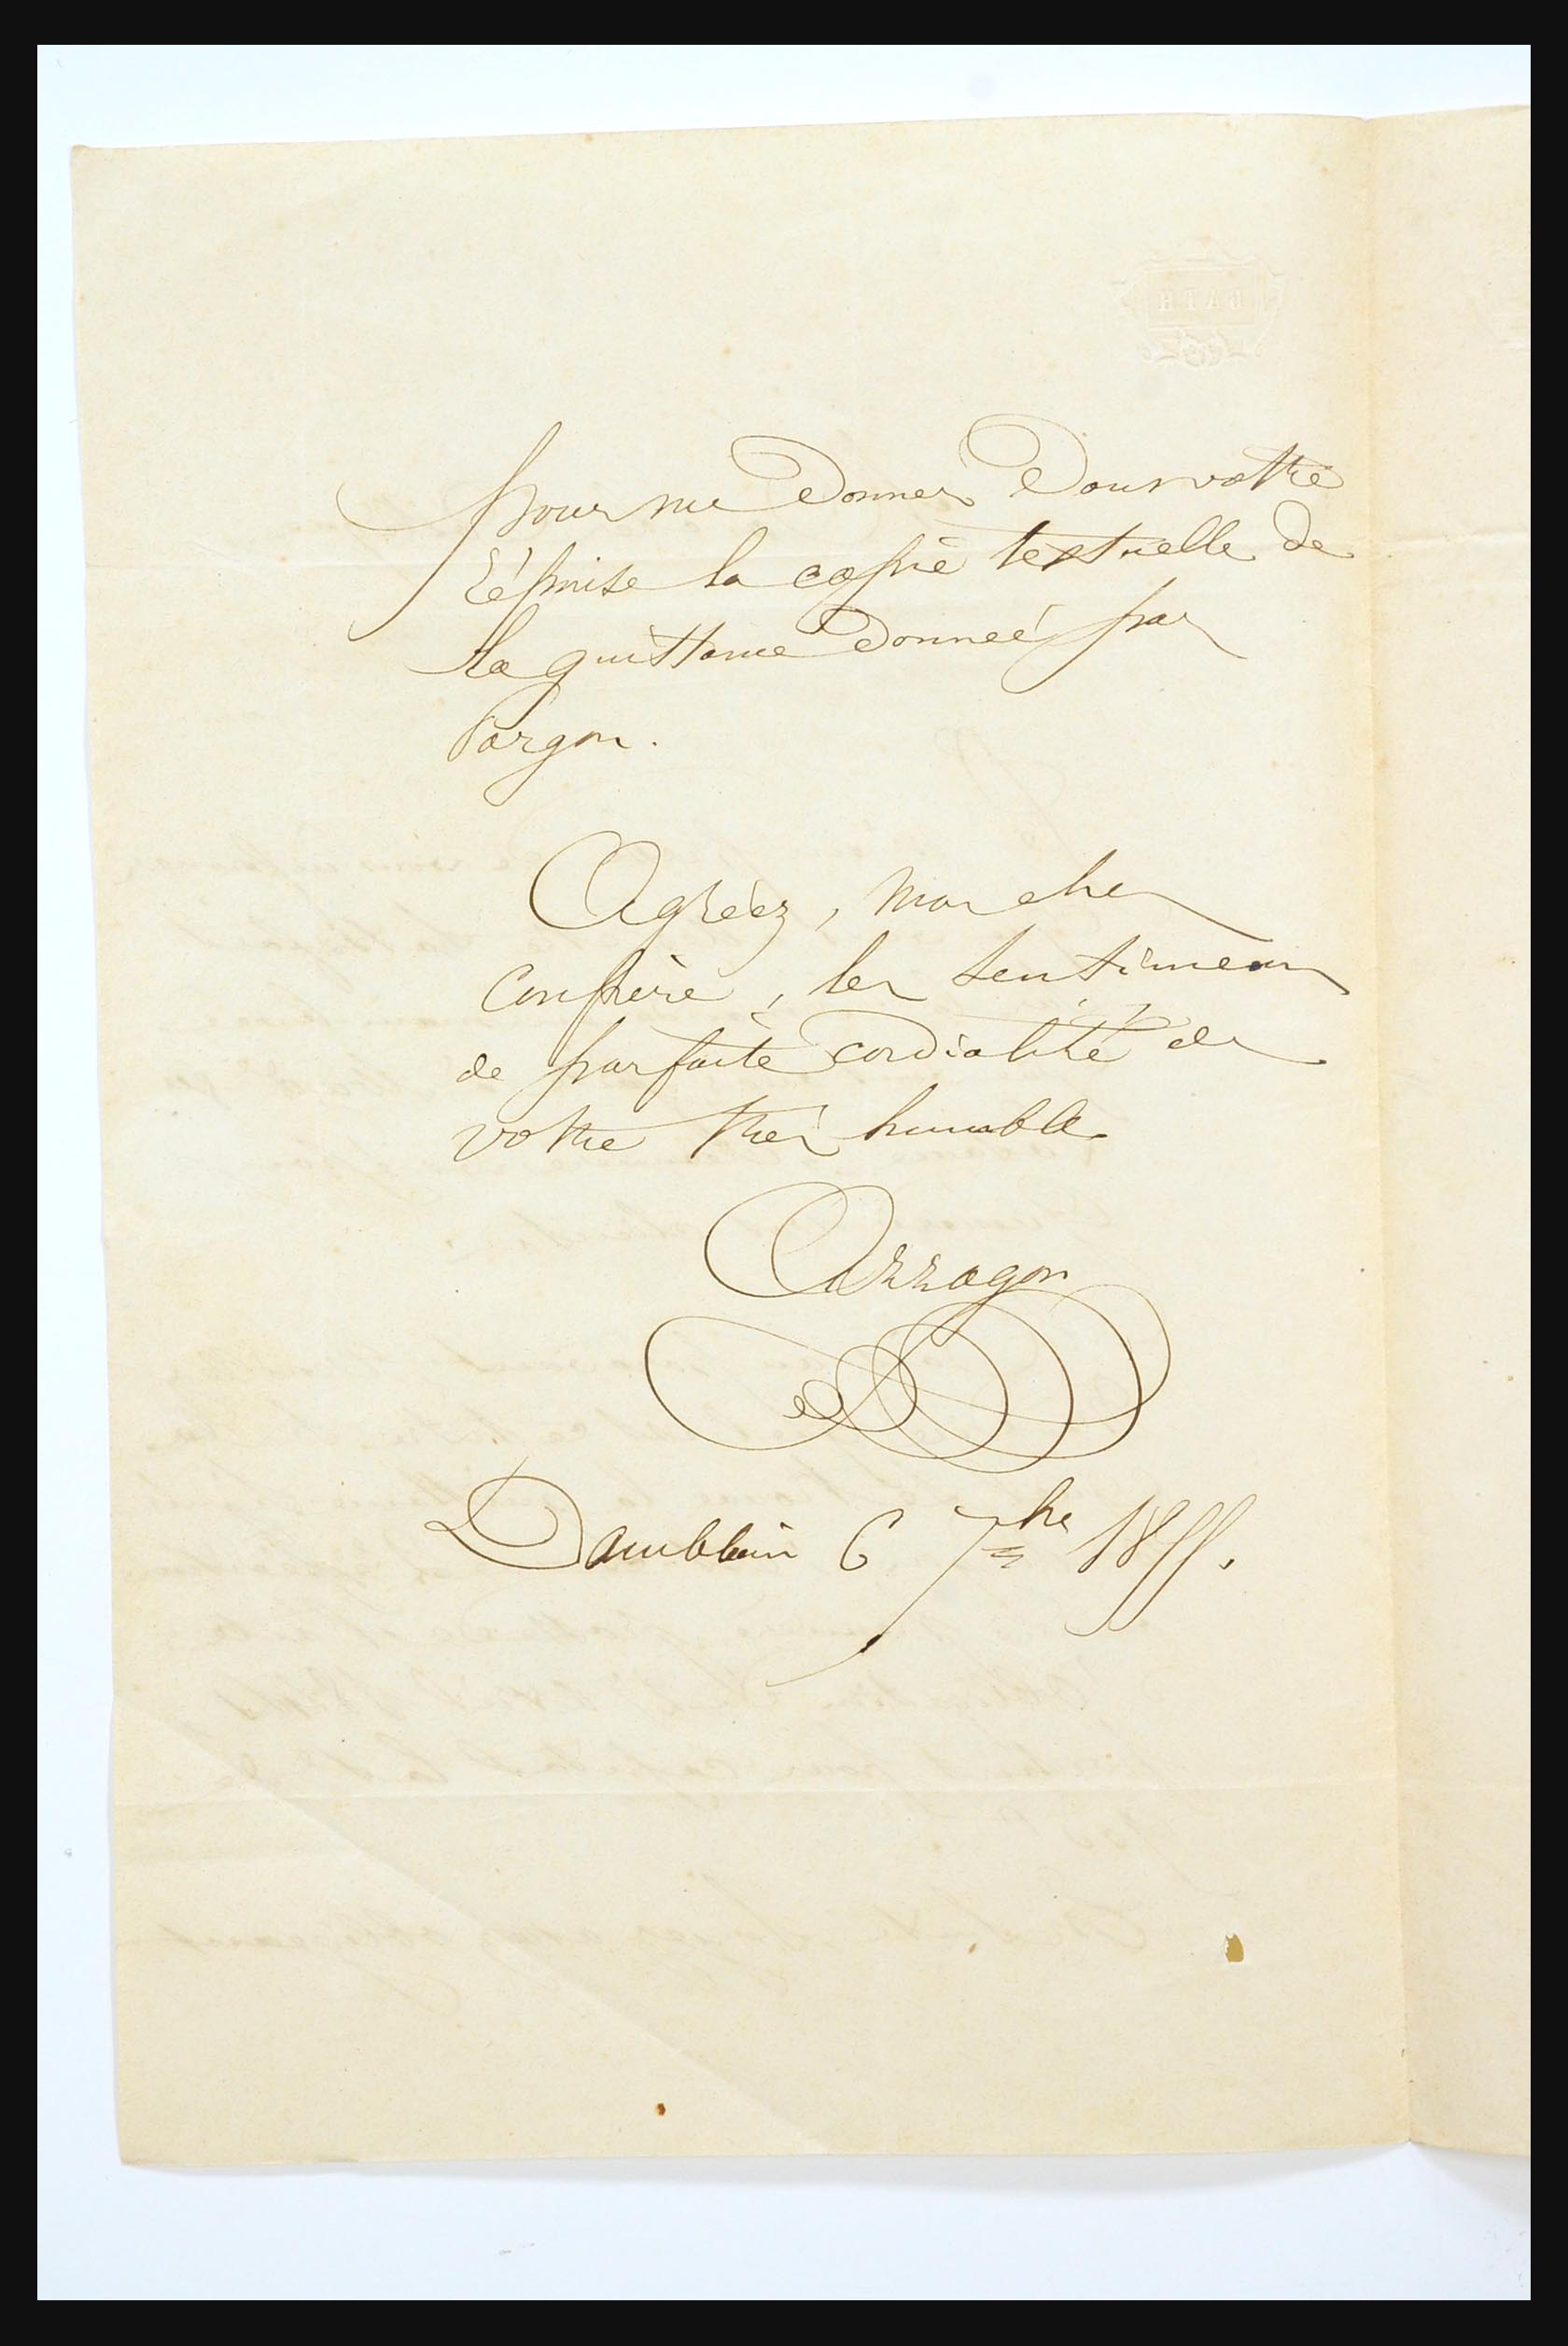 pour me donner dans votre
réponse la copie textuelle de
la quittance donnée par
Pargon.
Agréez, mon cher
Confrère, les sentimens
de parfaite cordialité de
votre très humble
Arragon
Damblain 6 7bre 1855.
BATH